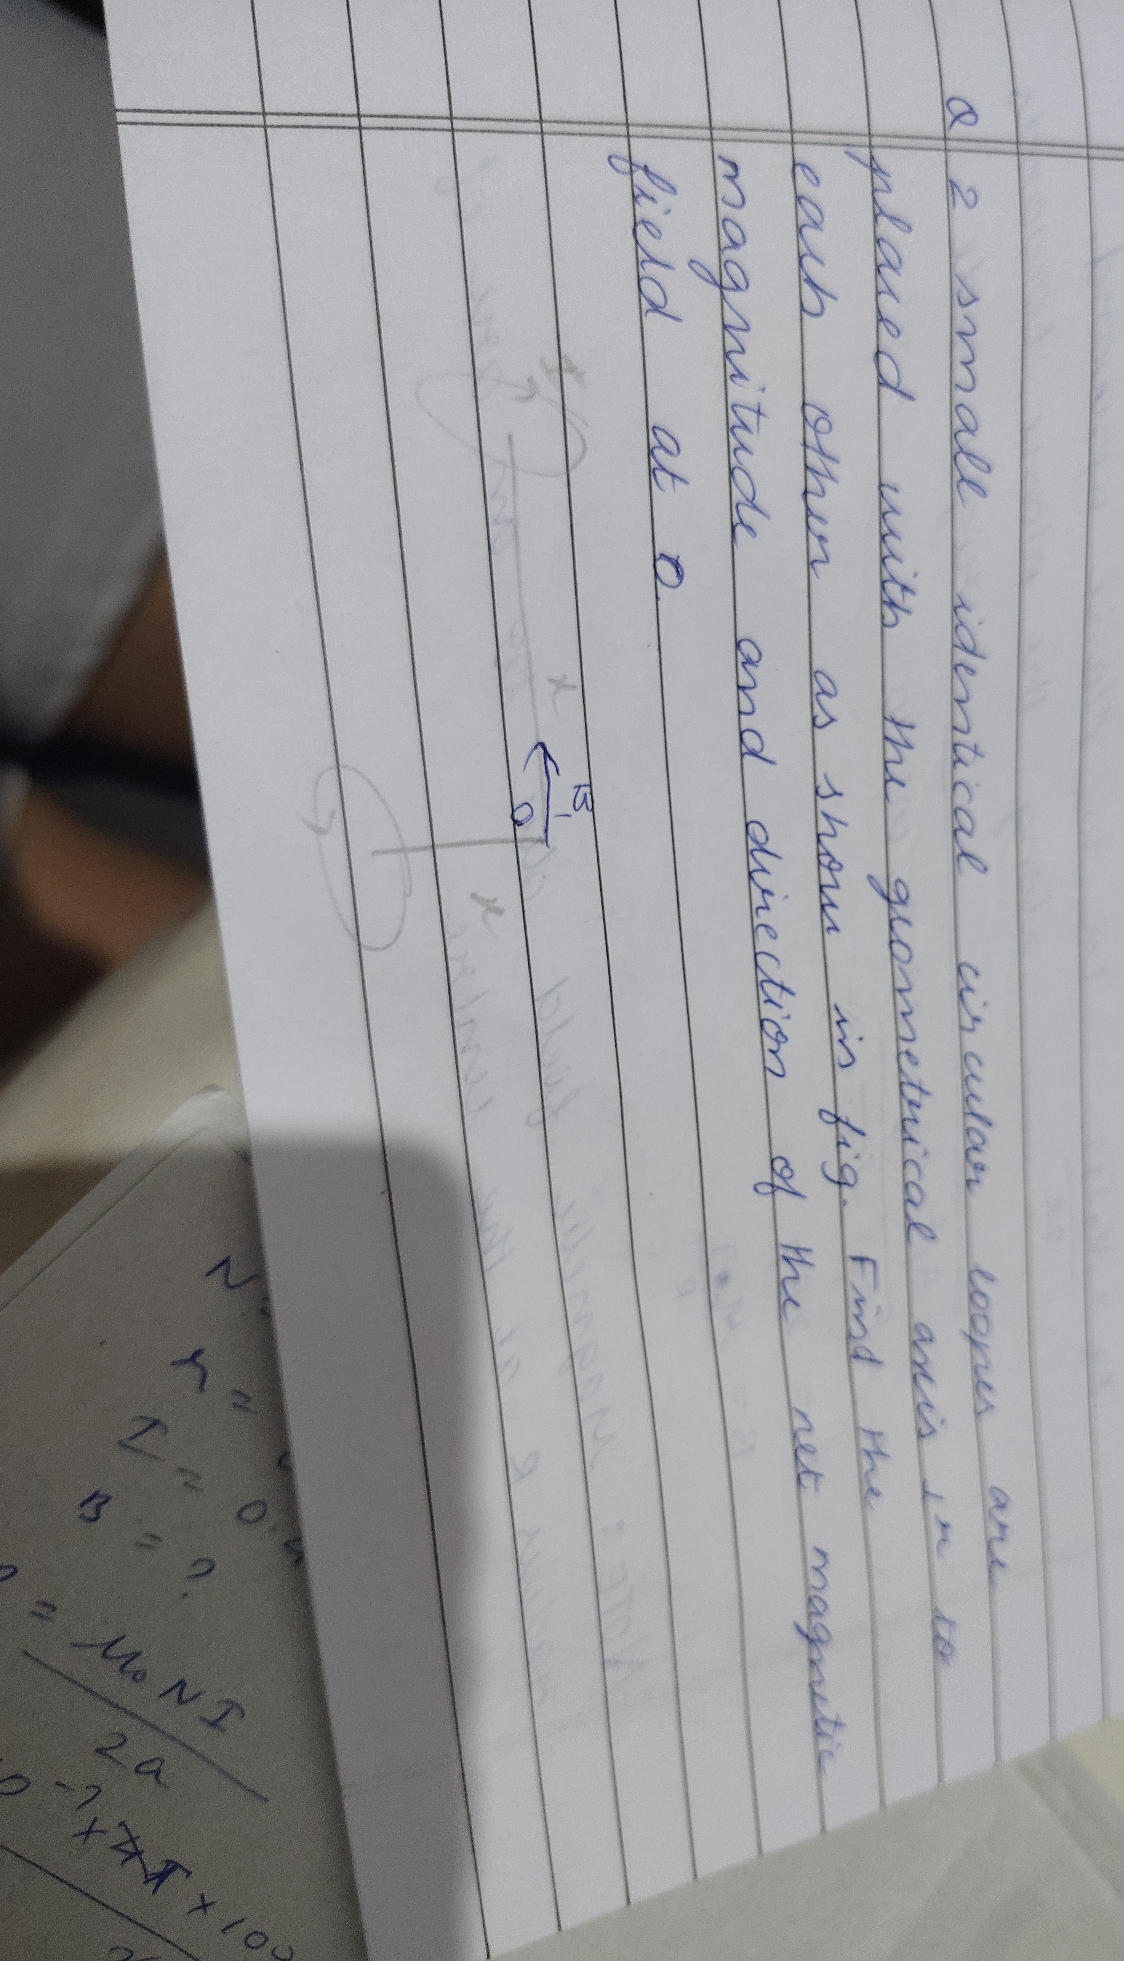 Q 2 small identical circular loopes are
placed with the geometrical axis ⊥r to
each other as shown in fig. Find the
magnitude and direction of the net magnetic
field at O.
I
x
B1
O
x
N =
r =
I = 0.
B = ?
= μ0NI
2a